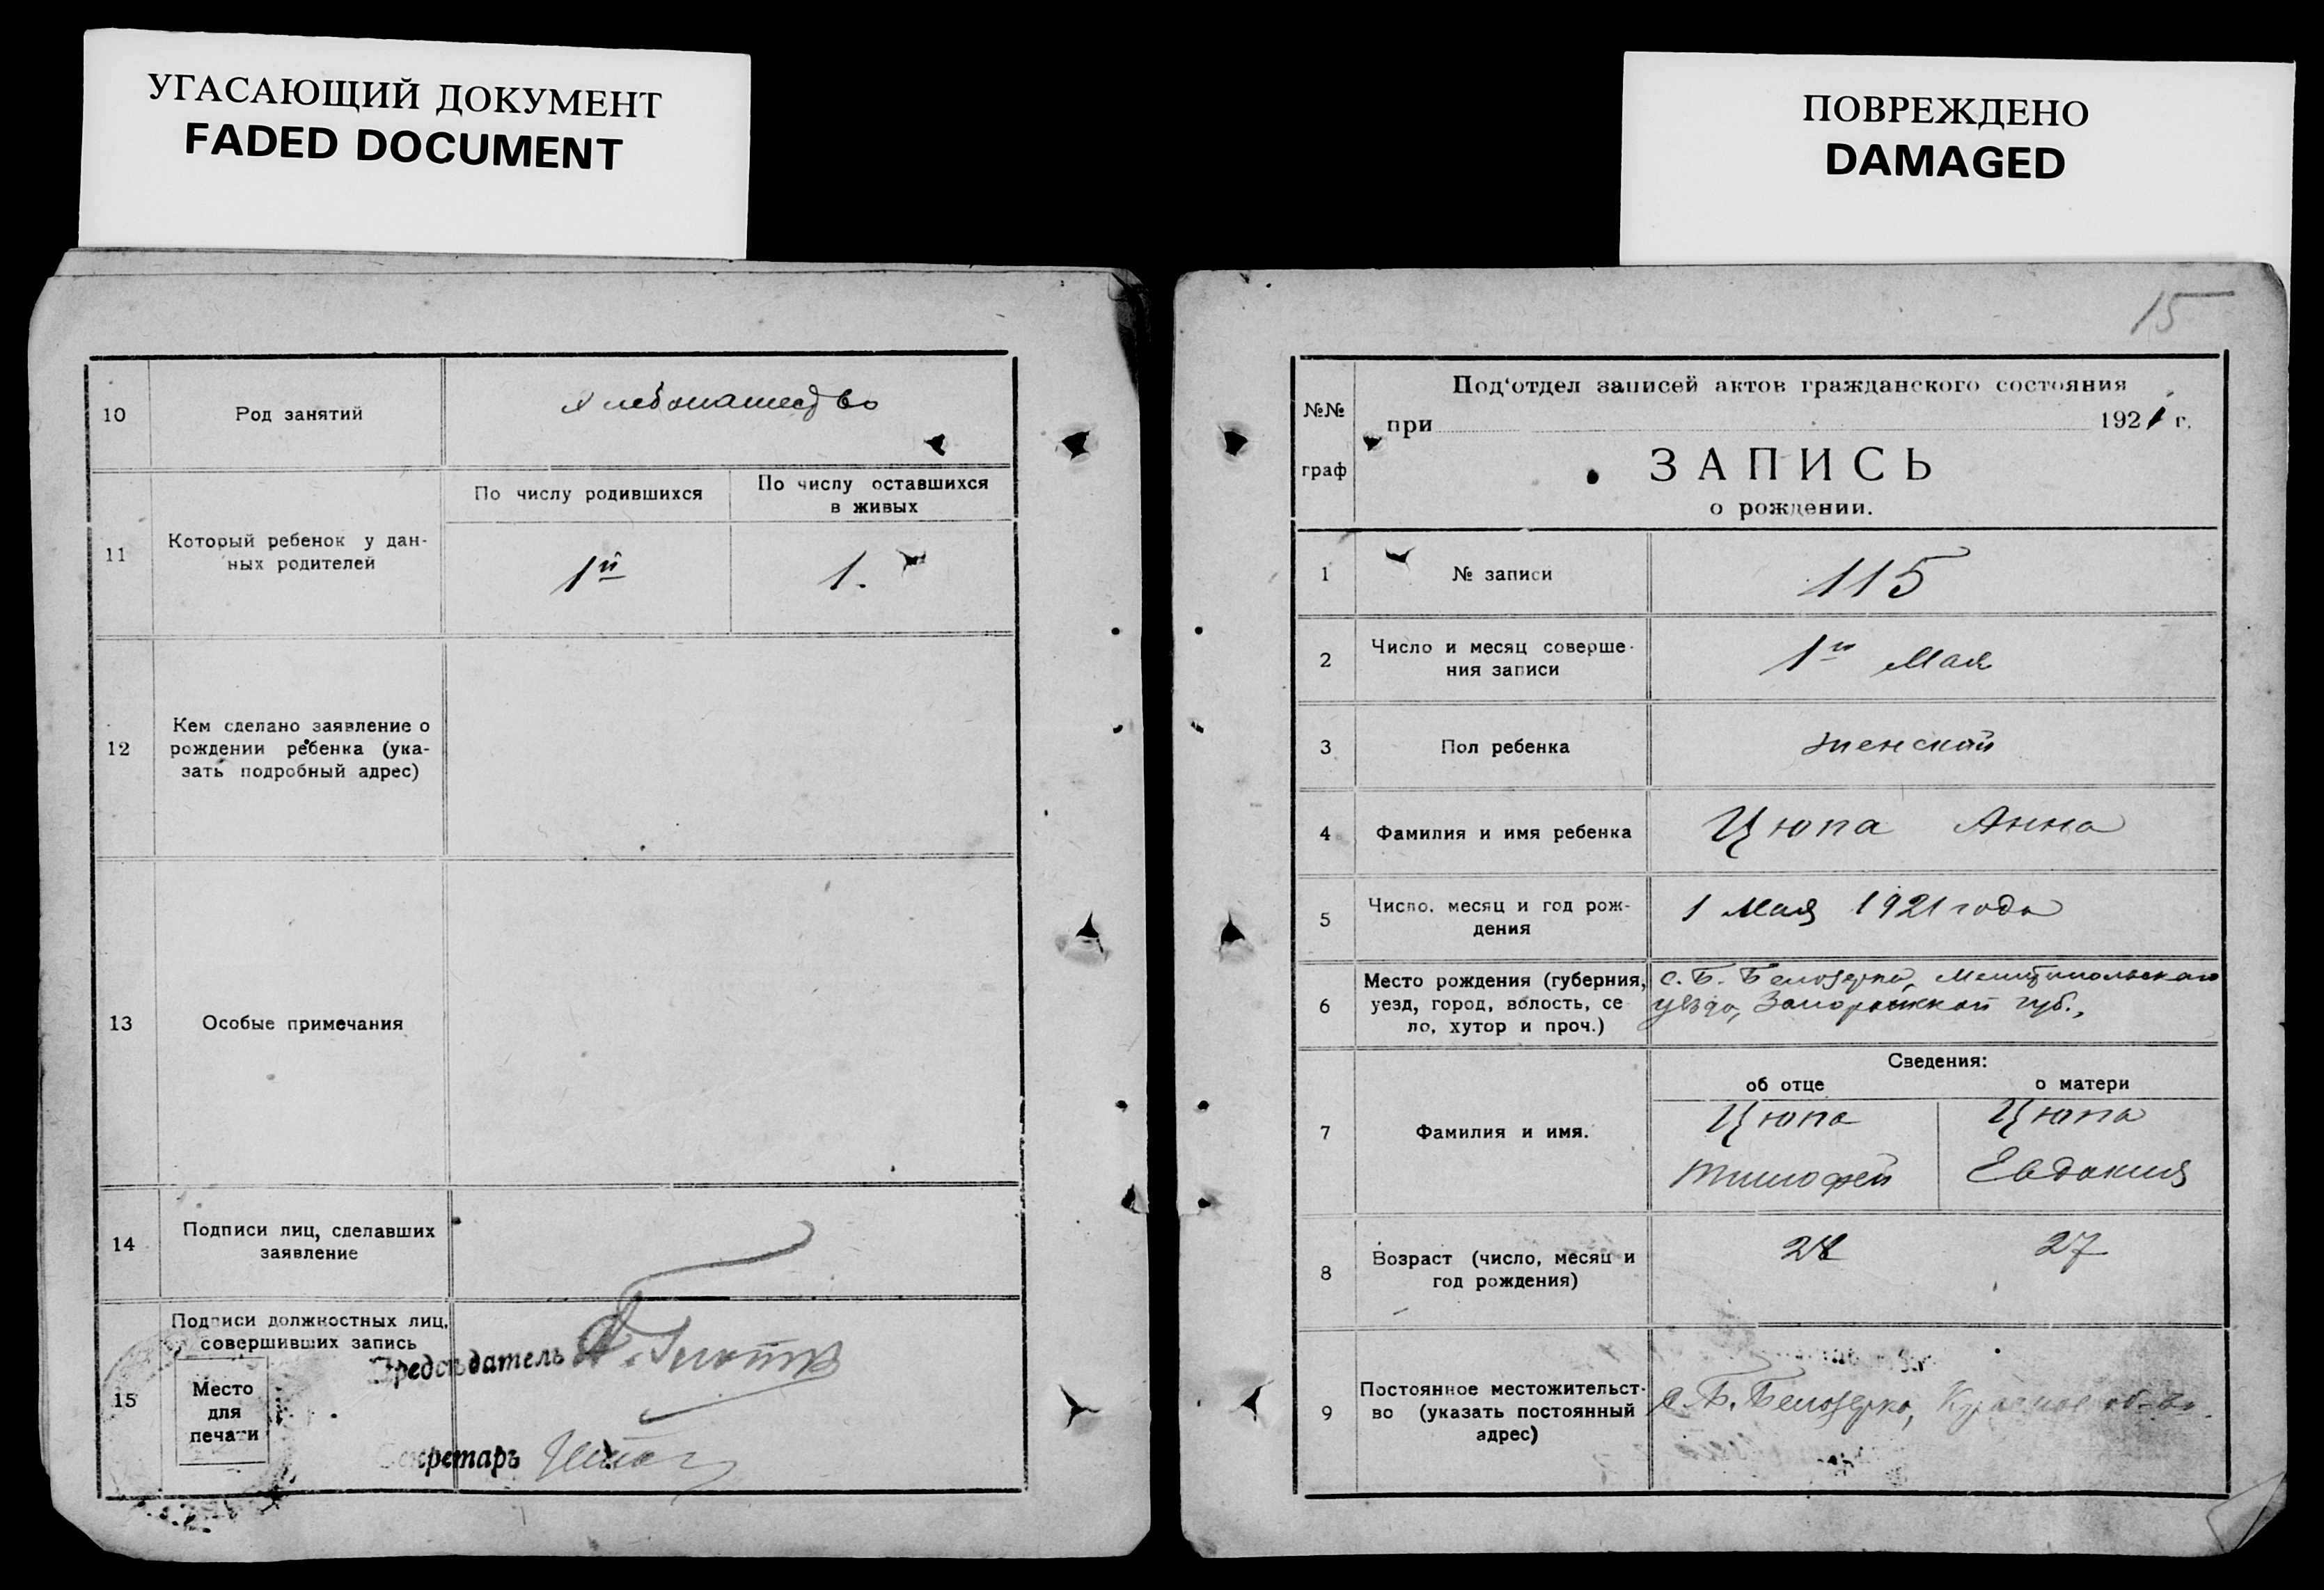 УГАСАЮЩИЙ ДОКУМЕНТ
FADED DOCUMENT
ПОВРЕЖДЕНО
DAMAGED
10
Род занятий
Хлебопашество
11
Который ребенок у дан-
ных родителей
По числу родившихся
По числу оставшихся
в живых
1й
1.
12
Кем сделано заявление о
рождении ребенка (ука-
зать подробный адрес)
13
Особые примечания
14
Подписи лиц, сделавших
заявление
15
Подписи должностных лиц,
совершивших запись
Место
для
печати
Председатель
Секретарь
15
№№
граф
Под'отдел записей актов гражданского состояния
при 1921 г.
ЗАПИСЬ
о рождении.
1
№ записи
115
2
Число и месяц соверше-
ния записи
1го Мая
3
Пол ребенка
женский
4
Фамилия и имя ребенка
Цюпа Анна
5
Число, месяц и год рож-
дения
1 Мая 1921 года
6
Место рождения (губерния,
уезд, город, волость, се
ло, хутор и проч.)
с. Б. Белозерка, Мелитопольского
уезда, Запорожской губ.,
7
Фамилия и имя.
Сведения:
об отце
о матери
Цюпа
Тимофей
Цюпа
Евдокия
8
Возраст (число, месяц и
год рождения)
28
27
9
Постоянное местожительст-
во (указать постоянный
адрес)
с. Б. Белозерка,